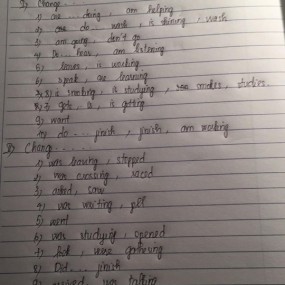 Change.......
1) are ... doing, am helping
2) are do... wash, is shining, wash
3) am going, don't go
4) Do... hear, am listening
5) loves, is working
6) speak, are learning
7) is smoking, is studying, studies
8) gets, is, is getting
9) want
10) do... finish, finish, am waiting
Chang......
1) was having, stopped
2) was crossing, raced
3) asked, saw
4) was waiting, fell
5) went
6) was studying, opened
7) were gathering
8) Did.... finish
9) was talking